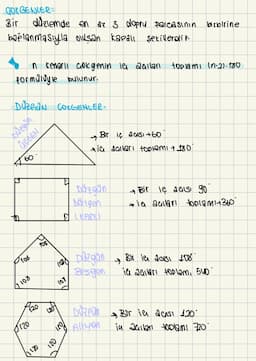 ÇOKGENLER:
Bir düzlemde en az 3 doğru parçasının birbirine
bağlanmasıyla oluşan kapalı şekillerdir.
n kenarlı çokgenin iç açıları toplamı (n-2).180
formülüyle bulunur.
DÜZGÜN ÇOKGENLER:
Düzgün
Üçgen
60°
→ Bir iç açısı → 60°
→ iç açıları toplamı → 180°
Düzgün
Dörtgen
(KARE)
→ Bir iç açısı 90°
→ iç açıları toplamı → 360°
108
108
108
108
108
Düzgün
Beşgen
→ Bir iç açısı 108°
iç açıları toplamı, 540°
120
120
120
120
120
120
Düzgün
Altıgen
→ Bir iç açısı 120°
iç açıları toplamı 720°